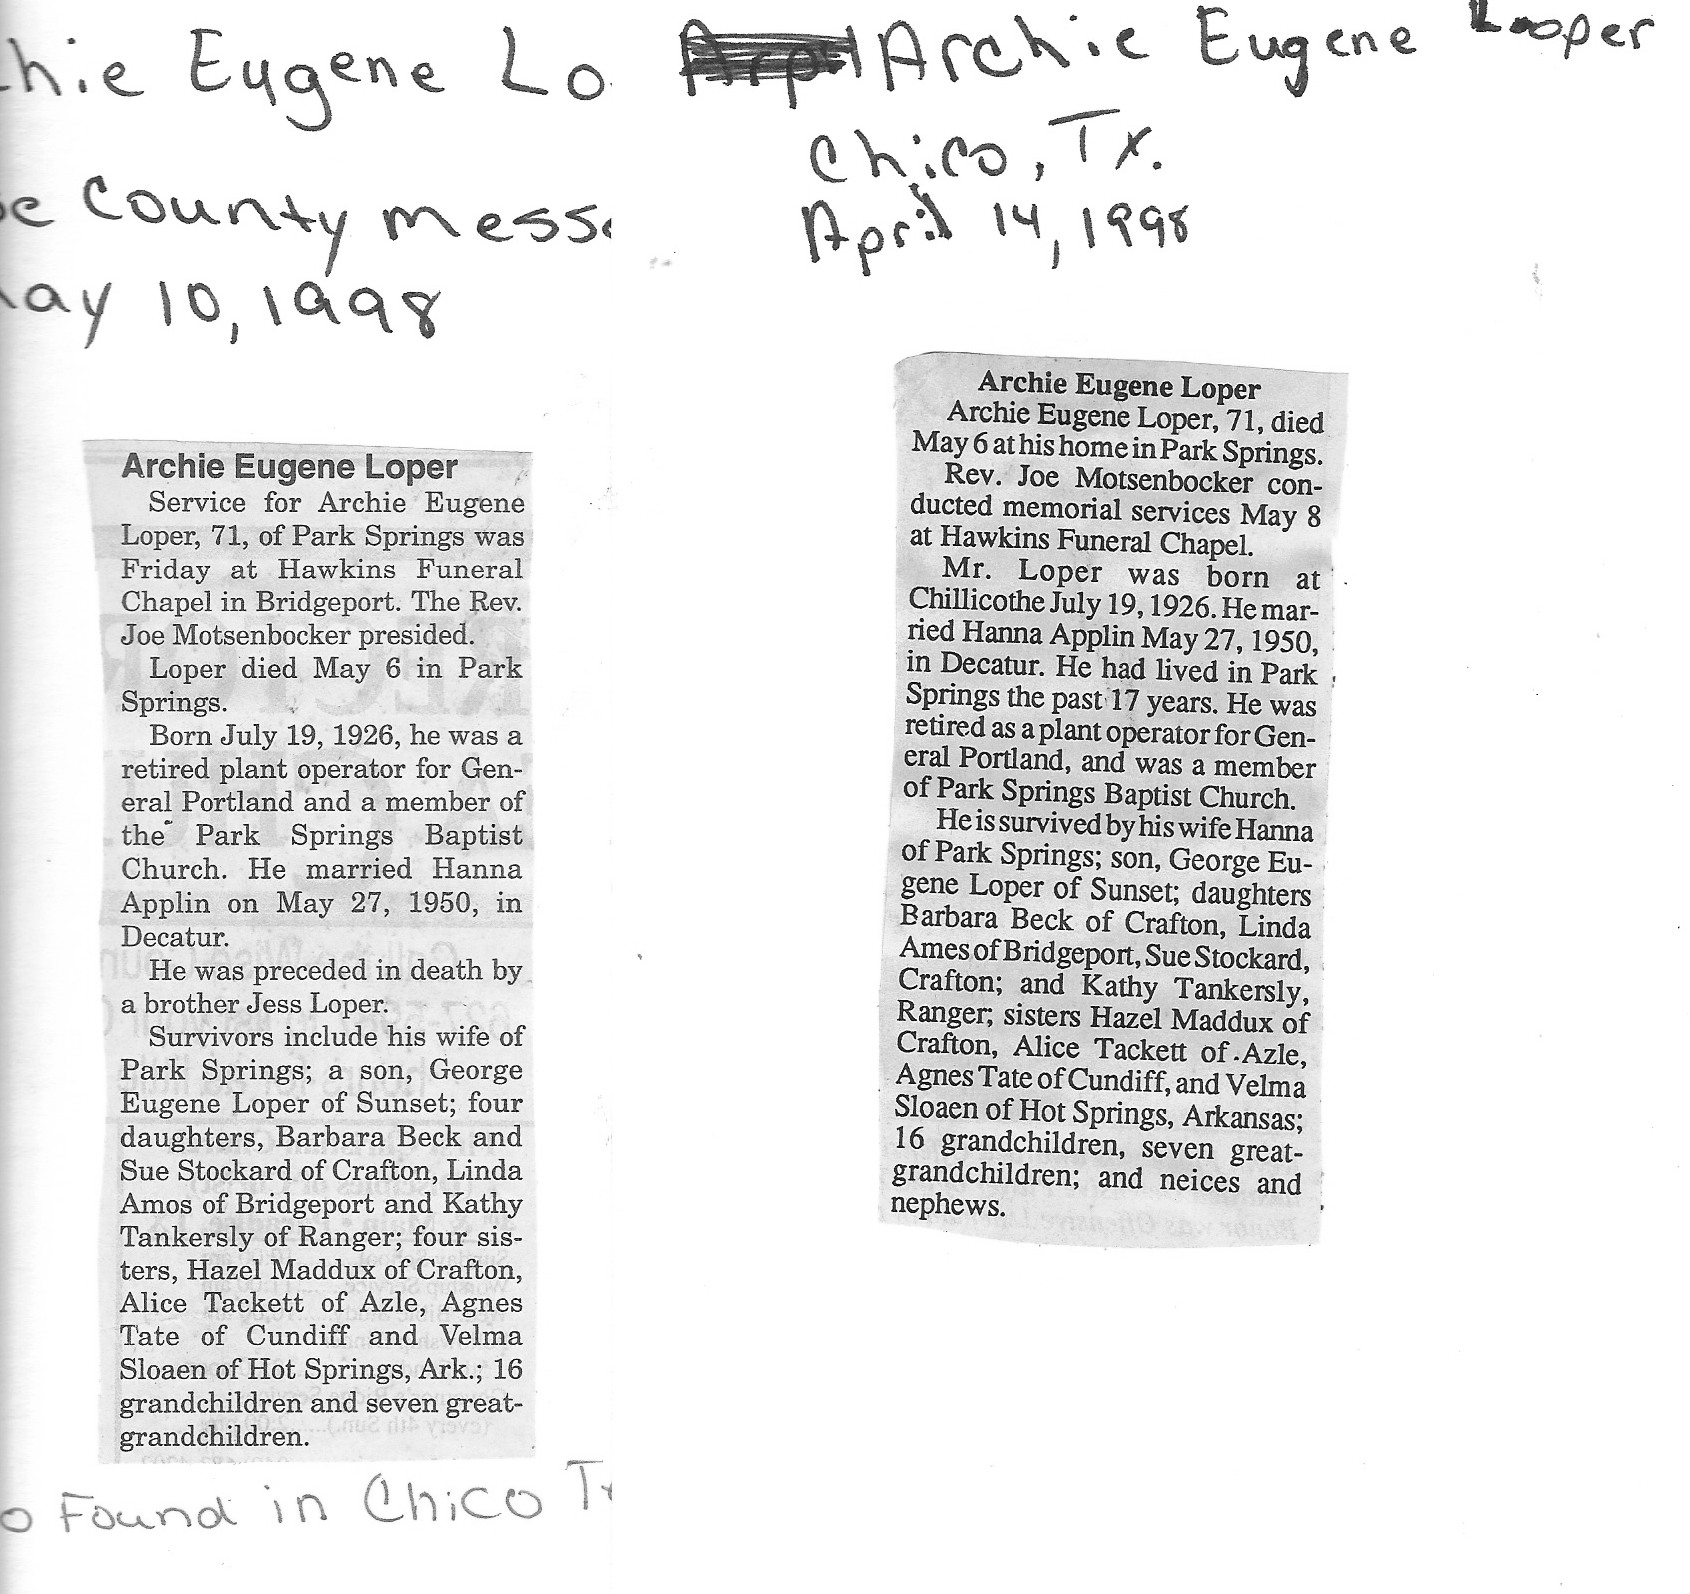 hie Eugene Lo
County mess
ay 10, 1998
Archie Eugene Loper
Service for Archie Eugene
Loper, 71, of Park Springs was
Friday at Hawkins Funeral
Chapel in Bridgeport. The Rev.
Joe Motsenbocker presided.
Loper died May 6 in Park
Springs.
Born July 19, 1926, he was a
retired plant operator for Gen-
eral Portland and a member of
the Park Springs Baptist
Church. He married Hanna
Applin on May 27, 1950, in
Decatur.
He was preceded in death by
a brother Jess Loper.
Survivors include his wife of
Park Springs; a son, George
Eugene Loper of Sunset; four
daughters, Barbara Beck and
Sue Stockard of Crafton, Linda
Amos of Bridgeport and Kathy
Tankersly of Ranger; four sis-
ters, Hazel Maddux of Crafton,
Alice Tackett of Azle, Agnes
Tate of Cundiff and Velma
Sloaen of Hot Springs, Ark.; 16
grandchildren and seven great-
grandchildren.
o Found in Chico Tx
Archie Eugene Looper
Chico, Tx.
April 14, 1998
Archie Eugene Loper
Archie Eugene Loper, 71, died
May 6 at his home in Park Springs.
Rev. Joe Motsenbocker con-
ducted memorial services May 8
at Hawkins Funeral Chapel.
Mr. Loper was born at
Chillicothe July 19, 1926. He mar-
ried Hanna Applin May 27, 1950,
in Decatur. He had lived in Park
Springs the past 17 years. He was
retired as a plant operator for Gen-
eral Portland, and was a member
of Park Springs Baptist Church.
He is survived by his wife Hanna
of Park Springs; son, George Eu-
gene Loper of Sunset; daughters
Barbara Beck of Crafton, Linda
Ames of Bridgeport, Sue Stockard,
Crafton; and Kathy Tankersly,
Ranger; sisters Hazel Maddux of
Crafton, Alice Tackett of Azle,
Agnes Tate of Cundiff, and Velma
Sloaen of Hot Springs, Arkansas;
16 grandchildren, seven great-
grandchildren; and neices and
nephews.